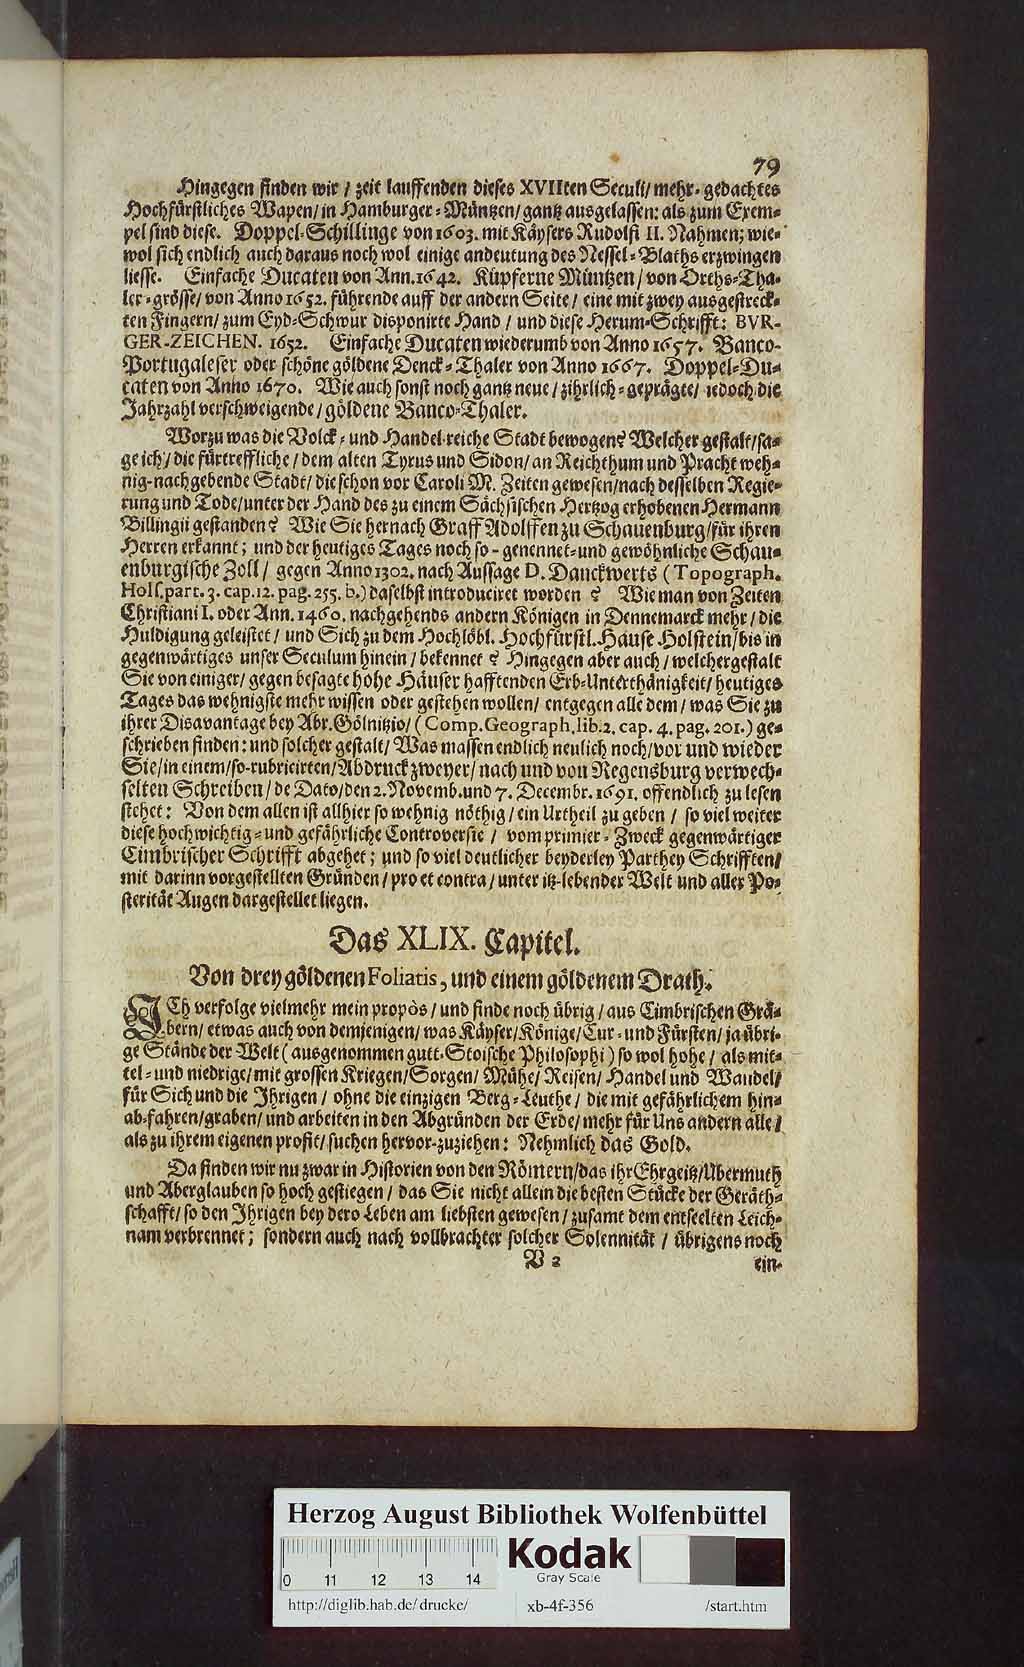 79
Hingegen finden wir / zeit lauffenden dieses XVIIten Seculi / mehr-gedachtes
Hochfürstliches Wapen / in Hamburger-Müntzen / gantz ausgelassen: als zum Exem-
pel sind diese. Doppel-Schillinge von 1603. mit Käysers Rudolfi II. Nahmen; wie-
wol sich endlich auch daraus noch wol einige andeutung des Nessel-Blaths erzwingen
liesse. Einfache Ducaten von Ann. 1642. Küpferne Müntzen / von Orths-Tha-
ler-grösse / von Anno 1652. führende auff der andern Seite / eine mit zwey ausgestreck-
ten Fingern / zum Eyd-Schwur disponirte Hand / und diese Herum-Schrifft: BVR-
GER-ZEICHEN. 1652. Einfache Ducaten wiederumb von Anno 1657. Banco-
Portugaleser oder schöne göldene Denck-Thaler von Anno 1667. Doppel-Du-
caten von Anno 1670. Wie auch sonst noch gantz neue / zihrlich-geprägte / iedoch die
Jahrzahl verschweigende / göldene Banco-Thaler.
Worzu was die Volck- und Handel-reiche Stadt bewogen? Welcher gestalt / sa-
ge ich / die fürtreffliche / dem alten Tyrus und Sidon / an Reichthum und Pracht weh-
nig-nachgebende Stadt / die schon vor Caroli M. Zeiten gewesen / nach desselben Regie-
rung und Tode / unter der Hand des zu einem Sächsischen Hertzog erhobenen Hermann
Billingii gestanden? Wie Sie hernach Graff Adolffen zu Schauenburg / für ihren
Herren erkannt; und der heutiges Tages noch so-genennet- und gewöhnliche Schau-
enburgische Zoll / gegen Anno 1302. nach Aussage D. Danckwerts (Topograph.
Hols. part. 3. cap. 12. pag. 255. b.) daselbst introduciret worden? Wie man von Zeiten
Christiani I. oder Ann. 1460. nachgehends andern Königen in Dennemarck mehr / die
Huldigung geleistet / und Sich zu dem Hochlöbl. Hochfürstl. Hause Holstein / bis in
gegenwärtiges unser Seculum hinein / bekennet? Hingegen aber auch / welchergestalt
Sie von einiger / gegen besagte hohe Häuser hafftenden Erb-Unterthänigkeit / heutiges
Tages das wehnigste mehr wissen oder gestehen wollen / entgegen alle dem / was Sie zu
ihrer Disavantage bey Abr. Gölnitzio / (Comp. Geograph. lib. 2. cap. 4. pag. 201.) ge-
schrieben finden: und solcher gestalt / Was massen endlich neulich noch / vor und wieder
Sie / in einem / so-rubricirten / Abdruck zweyer / nach und von Regensburg verwech-
selten Schreiben / de Dato / den 2. Novemb. und 7. Decembr. 1691. offendlich zu lesen
stehet: Von dem allen ist allhier so wehnig nöthig / ein Urtheil zu geben / so viel weiter
diese hochwichtig- und gefährliche Controversie / vom primier-Zweck gegenwärtiger
Cimbrischer Schrifft abgehet; und so viel deutlicher beyderley Parthey Schrifften /
mit darinn vorgestellten Gründen / pro et contra / unter itz-lebender Welt und aller Po-
sterität Augen dargestellet liegen.
Das XLIX. Capitel.
Von drey göldenen Foliatis, und einem göldenem Drath.
ICh verfolge vielmehr mein propòs / und finde noch übrig / aus Cimbrischen Grä-
bern / etwas auch von demjenigen / was Käyser / Könige / Cur- und Fürsten / ja übri-
ge Stände der Welt (ausgenommen gutt-Stoische Philosophi) so wol hohe / als mit-
tel- und niedrige / mit grossen Kriegen / Sorgen / Mühe / Reisen / Handel und Wandel /
für Sich und die Ihrigen / ohne die einzigen Berg-Leuthe / die mit gefährlichem hin-
ab-fahren / graben / und arbeiten in den Abgründen der Erde / mehr für Uns andern alle /
als zu ihrem eigenen profit / suchen hervor-zuziehen: Nehmlich das Gold.
Da finden wir nu zwar in Historien von den Römern / das ihr Ehrgeitz / Ubermuth
und Aberglauben so hoch gestiegen / das Sie nicht allein die besten Stücke der Geräth-
schafft / so den Ihrigen bey dero Leben am liebsten gewesen / zusamt dem entseelten Leich-
nam verbrennet; sondern auch nach vollbrachter solcher Solennität / übrigens noch
V 2 ein-
Herzog August Bibliothek Wolfenbüttel
0 11 12 13 14
Kodak
Gray Scale
http://diglib.hab.de/drucke/ xb-4f-356 /start.htm